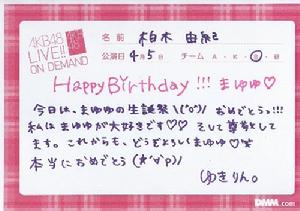 AKB48
LIVE!!
ON DEMAND
AKB48
名前 柏木 由紀
公演日 4月5日 チーム A・K・B・研
Happy Birthday!!! まゆゆ♡
今日は、まゆゆの生誕祭\(^o^)/ おめでとぅ!!!
私はまゆゆが大好きです♡♡ そして尊敬してます。これからも、どうぞよろしくまゆゆ♡
本当におめでとう(*^∀^p)/
ゆきりん。
DMM.com